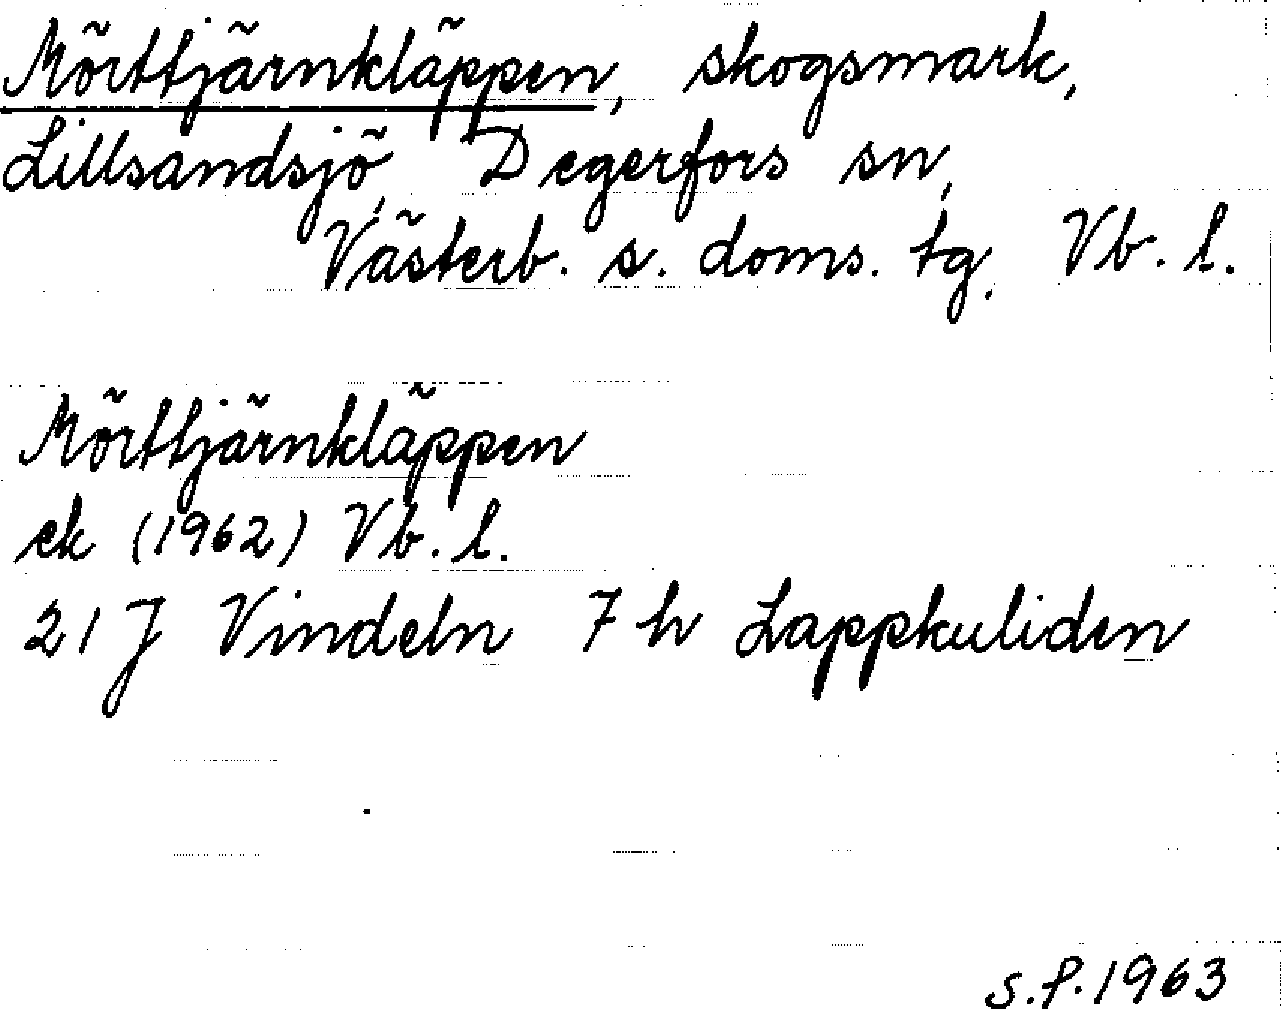 Mörttjärnkläppen, skogsmark,
Lillsandsjö, Degerfors sn,
Västerb. s. doms. tg. Vb. l.
Mörttjärnkläppen
ek (1962) Vb. l.
21 J Vindeln 7 h Lappkuliden
s.f. 1963